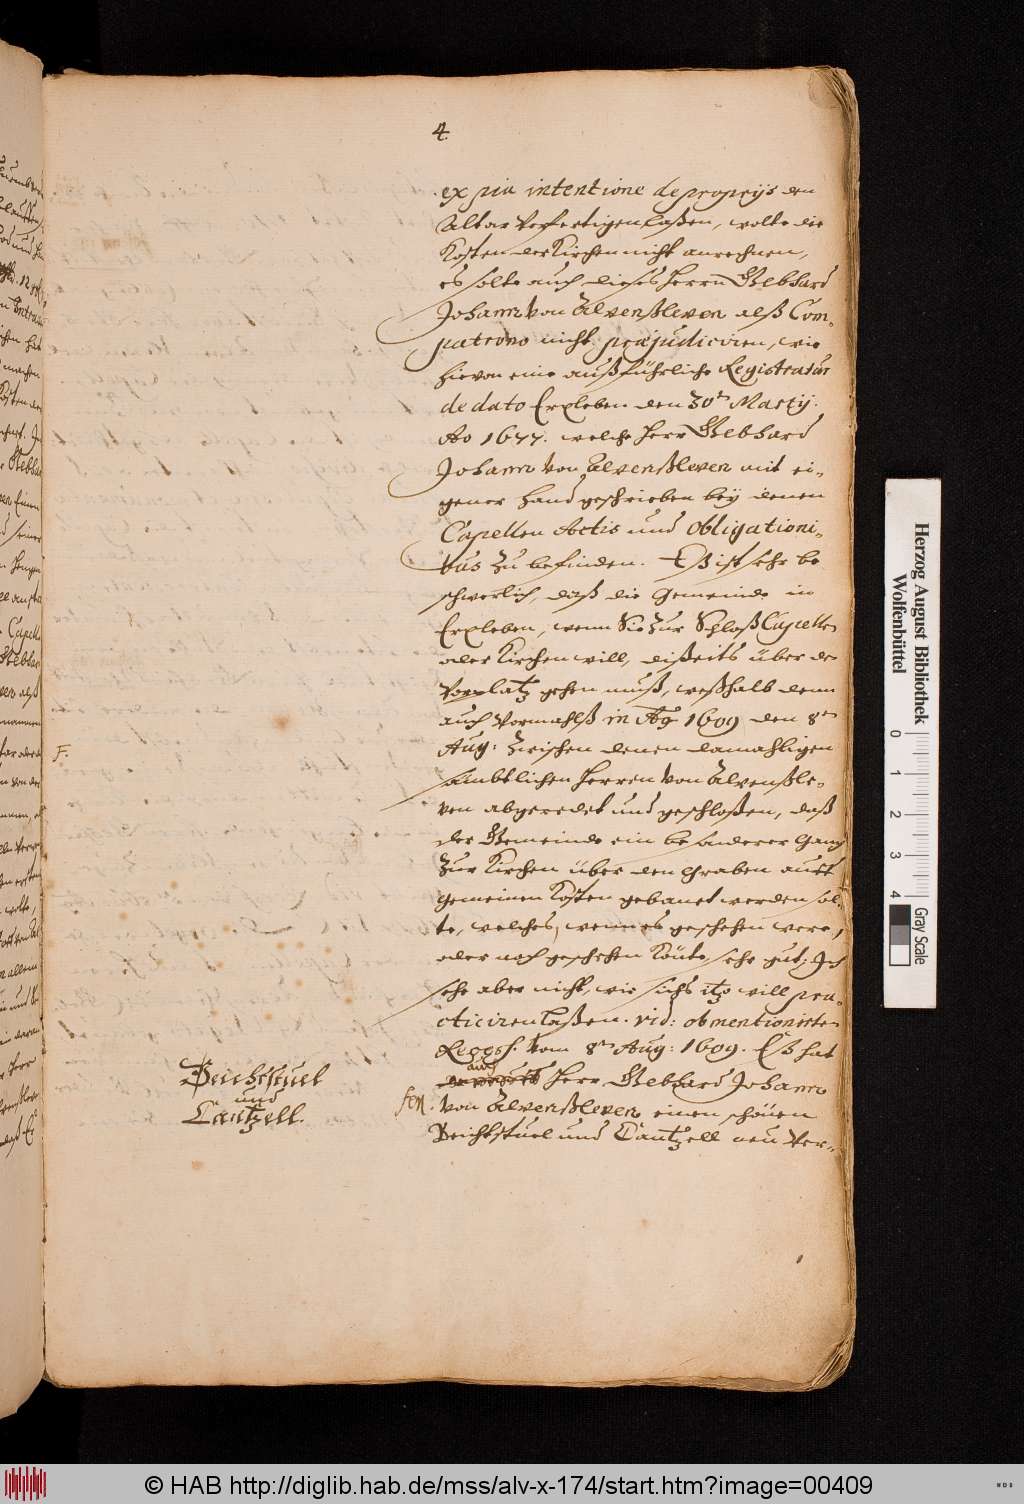 4.
ex pia intentione de propriis den
Altar verfertigen laßen, wolte die
Kosten der Kirchen nicht anrechnen,
es solte auch dieses Herrn Gebhard
Johann von Alvenßleven alß Com-
patrono nicht præjudiciren, wie
hievon eine außführliche Registratur
de dato Erxleben den 30t Martij.
Ao 1677. welche Herr Gebhard
Johann von Alvenßleven mit ei-
gener Hand geschrieben bey denen
Capellen Actis und Obligationi-
bus zu befinden. Eß ist sehr be
schwerlich, daß die Gemeinde in
Erxleben, wenn Sie zur SchloßCapelle
oder Kirchen will, dißeits über de
Vorplatz gehen muß, weßhalb denn
auch vormahlß in Ao 1609 den 8t
Aug: zwischen denen damahligen
sämbtlichen Herren von Alvenßle-
ven abgeredet und geschloßen, daß
der Gemeinde ein besonderer Gang
zur Kirchen über den Graben auß
gemeinen Kosten gebauet werden sol-
te, welches, wenn es geschehen were,
oder noch geschehen könte, sehr gut; Ich
sehe aber nicht, wie sichs itzo will pra-
cticiren laßen. vid: obmentionirte
Recess. vom 8t Aug: 1609. Eß hat
auch
Herr Gebhard Johann
von Alvenßleven einen schönen
Beichtstuel und Cantzell neu ver-
F.
Beichtstuel
und
Cantzell.
Herzog August Bibliothek
Wolfenbüttel
0 1 2 3 4
Gray Scale
© HAB http://diglib.hab.de/mss/alv-x-174/start.htm?image=00409